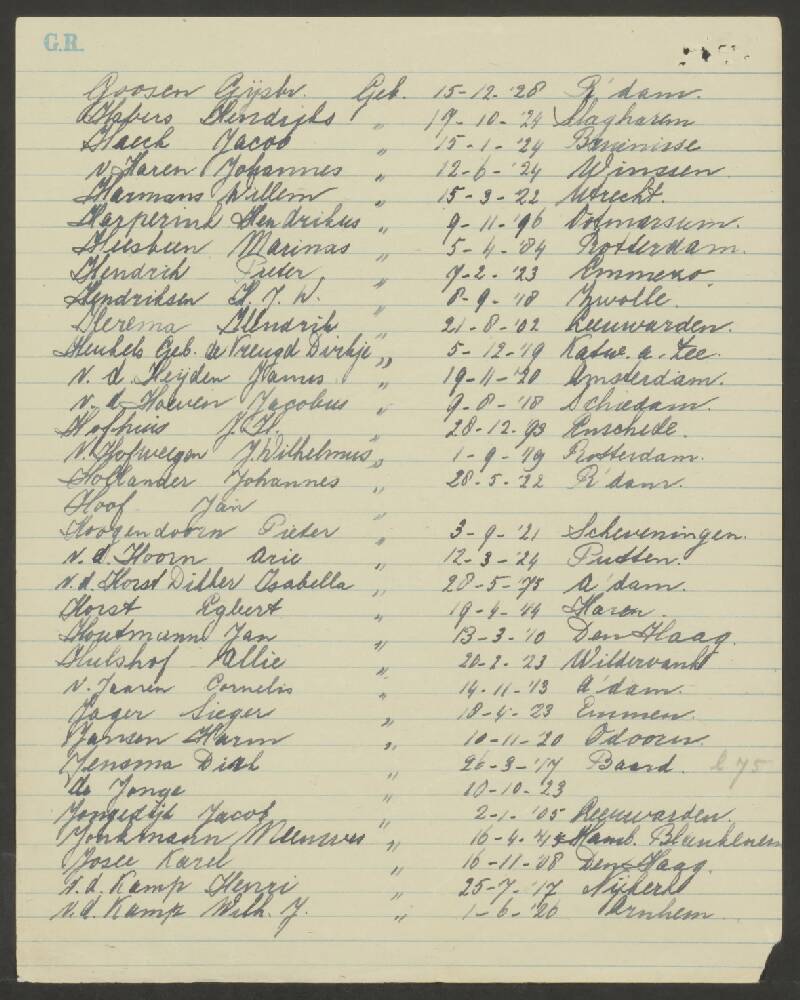 G.R.
Goosen Gijsbr. Geb. 15-12-'28 R'dam.
Habers Hendriks " 19-10-'24 Slagharen
Haeck Jacob " 15-1-'24 Bruinisse
v. Haren Johannes " 12-6-'24 Winssen
Harmans Willem " 15-3-'22 Utrecht.
Harperink Hendrikus " 9-11-'96 Ootmarsum.
Heesbeen Marinus " 5-4-'04 Rotterdam.
Hendrich Pieter " 7-2-'23
Hendriksen H. J. W. " 8-9-'18 Zwolle.
Herema Hendrik " 21-8-'02 Leeuwarden.
Heukels Geb. de Vreugd Dirkje " 5-12-'19 Katw. a. Zee.
v. d. Heijden Jamis " 19-11-'20 Amsterdam.
v. d. Hoeven Jacobus " 9-8-'18 Schiedam.
Hofhuis J. H. " 28-12-'93 Enschede.
v. Hofweegen J. Wilhelmus " 1-9-'19 Rotterdam.
Hollander Johannes " 28-5-'22 R'dam.
Hoof Jan "
Hoogendoorn Pieter " 3-9-'21 Scheveningen.
v. d. Hoorn Arie " 12-3-'24 Putten.
v. d. Horst Dibber Isabella " 28-5-'75 A'dam.
Horst Egbert " 19-4-'44 Haren.
Houtmann Jan " 13-3-'10 Den Haag.
Hulshof Allie " 20-2-'23 Wildervank
v. Jaaren Cornelis " 14-11-'13 A'dam.
Jager Sieger " 18-4-23 Emmen.
Jansen Harm " 10-11-'20 Odoorn.
Jensma Dick " 26-3-'17 Baard. b 75
de Jonge " 10-10-23
Jongedijk Jacob " 2-1-'05 Leeuwarden.
Jonkmann Meeuwes " 16-4- Hamb. Blankenese
Josee Karel " 16-11-'08 Den Haag.
v. d. Kamp Henri " 25-7-'17 Nijkerk
v. d. Kamp Wilh. J. " 1-6-'26 Arnhem